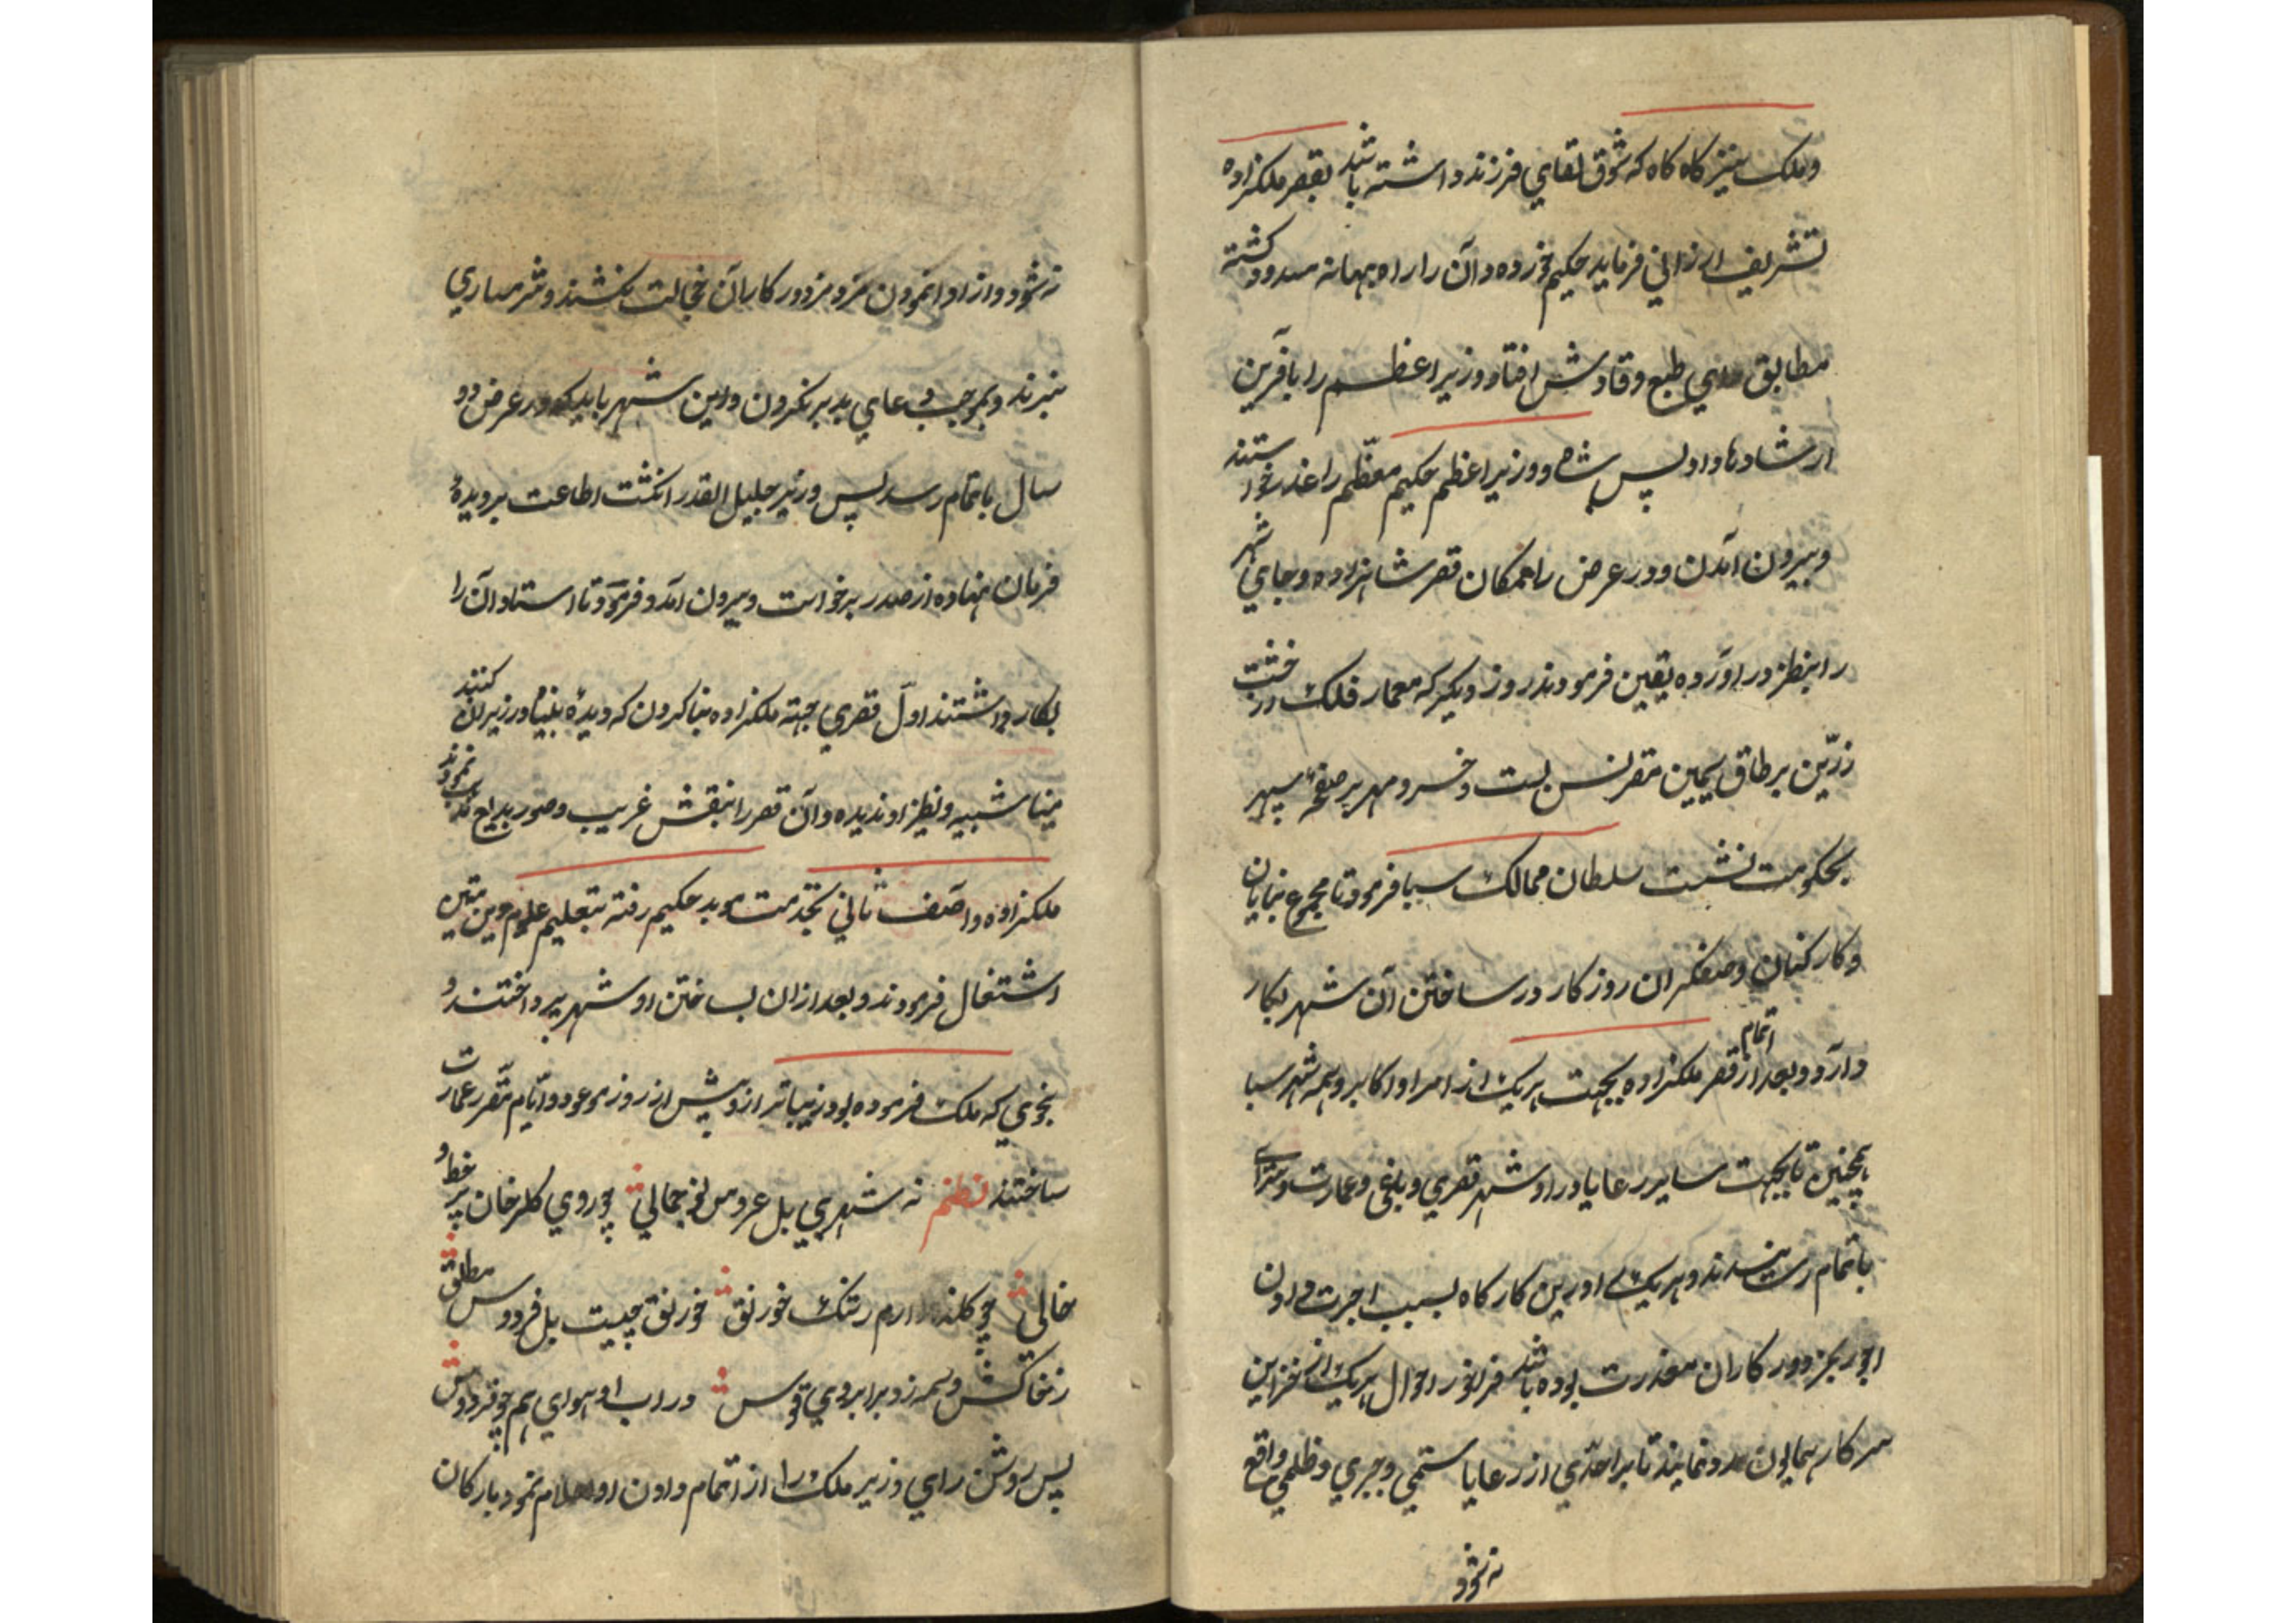 وملک نیز کاه کاه که شوق لقاي فرزند داشته باشد بقصر ملکزاده
تشریف ارزاني فرماید حکیم خورده دان را راه بهانه مسدود کشته
مطابق راي طبع وقادش افتاد و وزیر اعظم را بافرین
ارشادها داد پس شاه و وزیر اعظم حکیم معظّم را عذر خواستند
وبیرون آمدن و در عرض راه مکان قصر شاهزاده و جاي شهر
را بنظر در اورده یقین فرمودند روز دیکر که معمار فلک خشت
زرّین بر طاق سیمین مقرنس بست و خسرو مهر بر صفهٔ سپهر
بحکومت نشست سلطان ممالک سبا فرمود تا مجموع بنایان
وکارکنان و صنعکران روزکار در ساختن آن شهر بکار
دارد و بعد از اتمام قصر ملکزاده بجهت هریک از امرا و اکابر و همه شهر سبا
همچنین تا بجهت سایر رعایا در او شهر قصري و باغي و عمارت و سرای
باتمام رسانیدند و هریک اورین کارکاه بسبب اجرت دادن
اجور بمزدورکاران معذرت بوده باشد فراخور احوال هریک از خزاین
سرکار همایون مدد نمایند تا بر احدي از رعایا ستمي و جبري و ظلمي واقع
نه شود
نه شود و از ادا نمودن مزد مزدورکاران خجالت نکشند و شرمساري
نبرند و بموجب دعاي بد بر نکردن و این شهر باید که در عرض دو
سال باتمام رسد پس وزیر جلیل القدر انکشت اطاعت بر دیدهٔ
فرمان نهاده از صدر برخواست و بیرون آمد و فرمود تا استادان را
بکار داشتند اوّل قصري جهته ملکزاده بنا کردن که دیدهٔ بینا در زیر این کنبد
مینا شبیه و نظیر او ندیده و آن قصر را بنقش غریب و صور بدایع نمودند
ملکزاده و آصف ثاني بخدمت موبد حکیم رفته بتعلیم علوم دین متین
اشتغال فرمودند و بعد از ان بساختن او شهر پرداختند و
بنحوي که ملک فرموده بود زیباتر از و پیش از روز موعود و اتّام مقرّر عمارت
ساختند نظم نه شهري بل عروس نغز جمالي چو روي کلرخان پر خط و
خالي چو کلزار ارم رشک خورنق خورنق چیست بل فردوس مطلق
ز خاکش وسمه زد بر ابروي قوس در اب او هواي هم چو فردوس
پس روشن راي وزیر ملک را از اتمام دادن او اعلام نمود بارکان